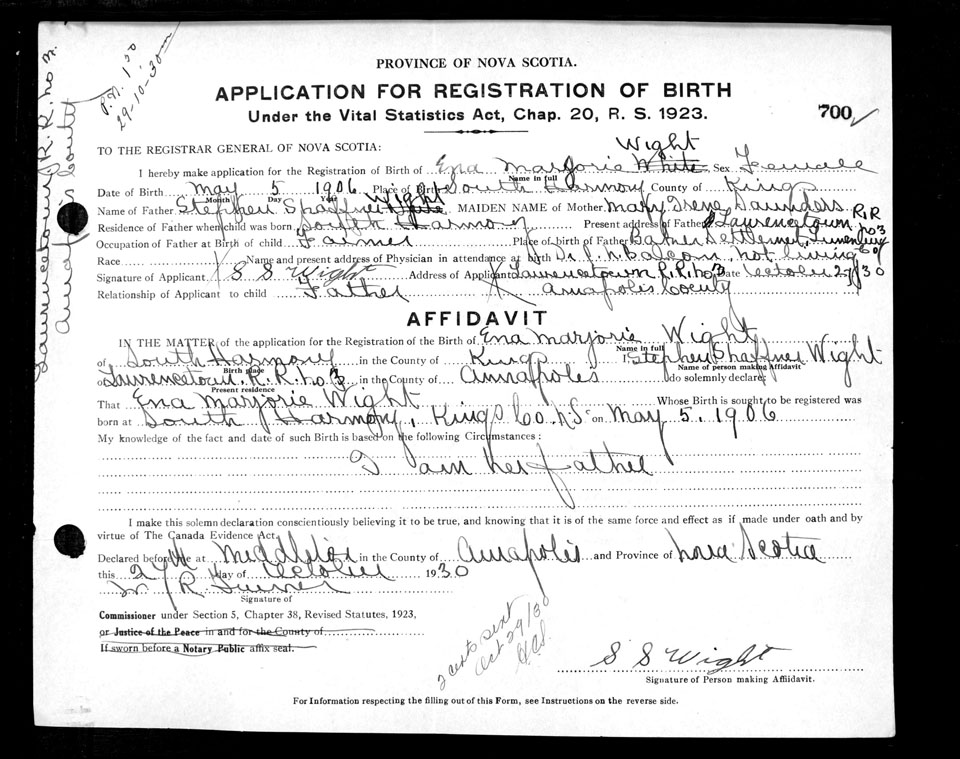 PROVINCE OF NOVA SCOTIA.
APPLICATION FOR REGISTRATION OF BIRTH
Under the Vital Statistics Act, Chap. 20, R. S. 1923.
700
P.N. 1.00
29-10-30 m
Lawrencetown R. R. No 3.
Annapolis County
TO THE REGISTRAR GENERAL OF NOVA SCOTIA:
Wight
I hereby make application for the Registration of Birth of Ena Marjorie White Sex Female
Name in full
Date of Birth May 5 1906 Place of Birth South Harmony County of Kings
Month Day Year
Wight
Name of Father Stephen Shaffner MAIDEN NAME of Mother Mary Irene Saunders
Residence of Father when child was born South Harmony Present address of Father Lawrencetown R.R No 3
Occupation of Father at Birth of child Farmer Place of birth of Father Settlement, Lunenburg Co
Race Name and present address of Physician in attendance at birth Dr. not living
Signature of Applicant S S Wight Address of Applicant Lawrencetown R.R. No 3 Date October 27/30
Relationship of Applicant to child Father Annapolis County
AFFIDAVIT
IN THE MATTER of the application for the Registration of Birth of Ena Marjorie Wight
Name in full
of South Harmony in the County of Kings I Stephen Shaffner Wight
Birth place Name of person making Affidavit
of Lawrencetown R. R. No 3 in the County of Annapolis do solemnly declare:
Present residence
That Ena Marjorie Wight Whose Birth is sought to be registered was
born at South Harmony, Kings Co. N.S. on May 5, 1906
My knowledge of the fact and date of such Birth is based on the following Circumstances:
I am her father
I make this solemn declaration conscientiously believing it to be true, and knowing that it is of the same force and effect as if made under oath and by
virtue of The Canada Evidence Act.
Declared before me at Middleton in the County of Annapolis and Province of Nova Scotia
this 27th day of October 1930
Signature of
Commissioner under Section 5, Chapter 38, Revised Statutes, 1923,
or Justice of the Peace in and for the County of
If sworn before a Notary Public affix seal.
2 certs sent
Oct 29/30
S S Wight
Signature of Person making Affidavit.
For Information respecting the filling out of this Form, see Instructions on the reverse side.